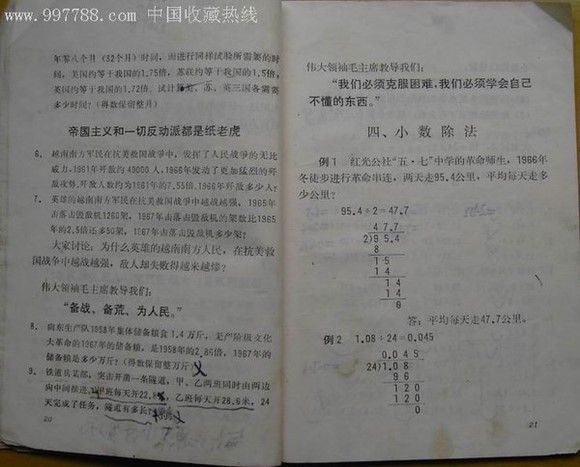 www.997788.com 中国收藏热线
年零八个月（32个月）时间，而进行同样试验所需要的时
间，美国约等于我国的1.75倍，苏联约等于我国的1.5倍，
英国约等于我国的1.72倍，试计算美、苏、英三国各需要
多少时间？（得数保留整月）
帝国主义和一切反动派都是纸老虎
6. 越南南方军民在抗美救国战争中，发挥了人民战争的无比
威力，1961年歼敌约49000人，1966年发动了更加猛烈的歼
敌攻势，歼敌人数约为1961年的7.55倍，1966年歼敌多少人？
7. 英雄的越南南方军民在抗美救国战争中越战越强，1965年
击落击毁敌机1260架，1967年击落击毁敌机的架数比1965
年的2.5倍还多50架，1967年击落击毁敌机多少架？
大家讨论：为什么英雄的越南南方人民，在抗美救
国战争中越战越强，敌人却失败得越来越惨？
伟大领袖毛主席教导我们：
“备战、备荒、为人民。”
8. 向东生产队1958年集体储备粮食1.4万斤，无产阶级文化
大革命的1967年的储备粮，是1958年的2.86倍，1967年的
储备粮是多少万斤？（得数保留整万斤）
9. 铁道兵某部，突击开凿一条隧道，甲、乙两班同时由两边
向中间推进，甲班每天开22.8米，乙班每天开28.6米，24
天完成了任务，隧道有多长？
20
伟大领袖毛主席教导我们：
“我们必须克服困难，我们必须学会自己
不懂的东西。”
四、小数除法
例1 红光公社“五·七”中学的革命师生，1966年
冬徒步进行革命串连，两天走95.4公里，平均每天走多
少公里？
95.4÷2=47.7
47.7
2)95.4
8
15
14
14
14
0
答：平均每天走47.7公里。
例2 1.08÷24=0.045
0.045
24)1.08
96
120
120
0
21